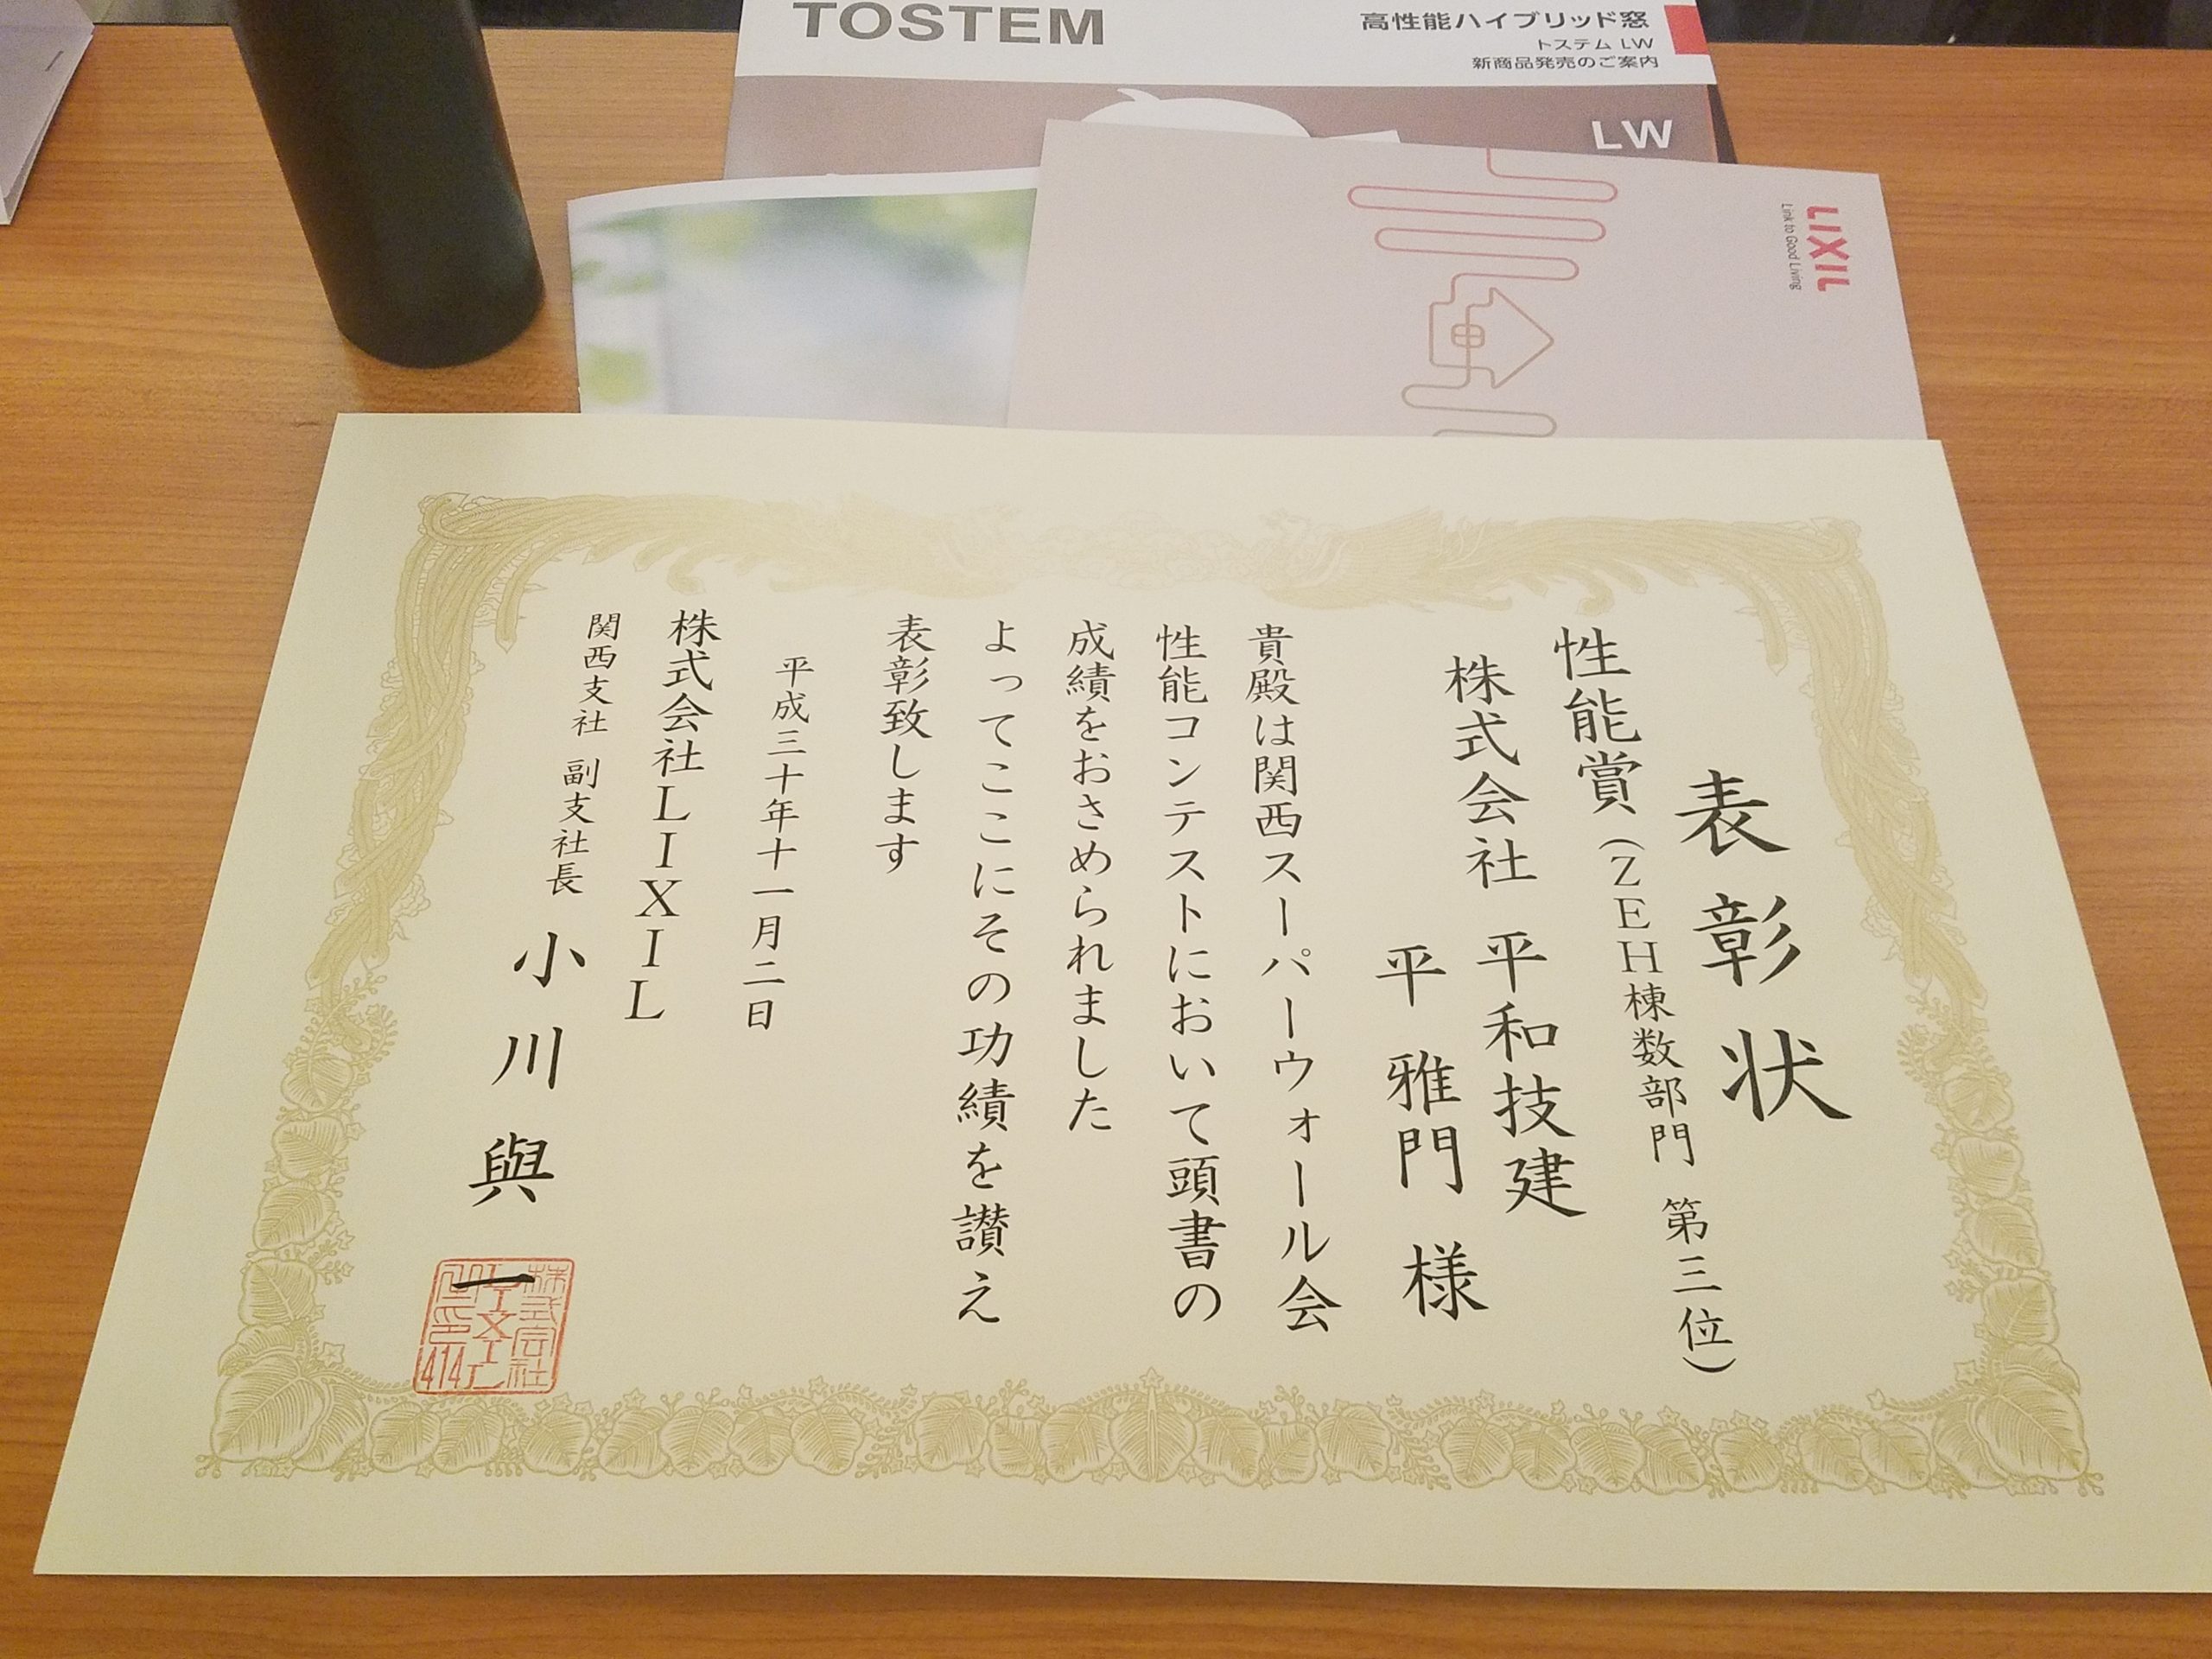 TOSTEM
高性能ハイブリッド窓
トステム LW
新商品発売のご案内
LW
LIXIL
Link to Good Living
表彰状
性能賞(ZEH棟数部門 第三位)
株式会社 平和技建
平 雅門 様
貴殿は関西スーパーウォール会
性能コンテストにおいて頭書の
成績をおさめられました
よってここにその功績を讃え
表彰致します
平成三十年十一月二日
株式会社LIXIL
関西支社 副支社長 小川與一
株式会社
LIXIL
414